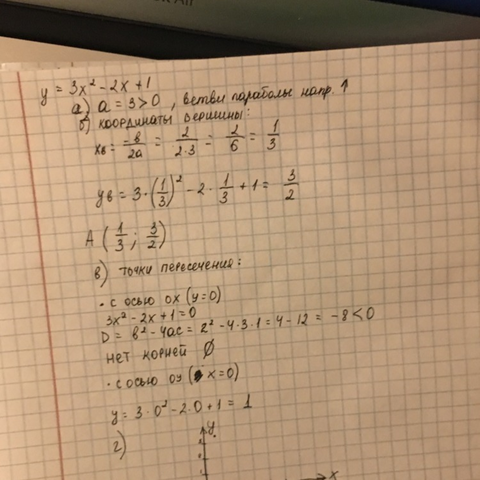 y = 3x² - 2x + 1
а) a = 3 > 0 , ветви параболы напр. ↑
б) координаты вершины:
xв = -в/2а = 2/2·3 = 2/6 = 1/3
yв = 3·(1/3)² - 2·1/3 + 1 = 3/2
A (1/3 ; 3/2)
в) точки пересечения:
· с осью ох (y=0)
3x² - 2x + 1 = 0
D = в² - 4ас = 2² - 4·3·1 = 4 - 12 = -8 < 0
нет корней ∅
· с осью оу ( x=0)
y = 3·0² - 2·0 + 1 = 1
г)
y
x